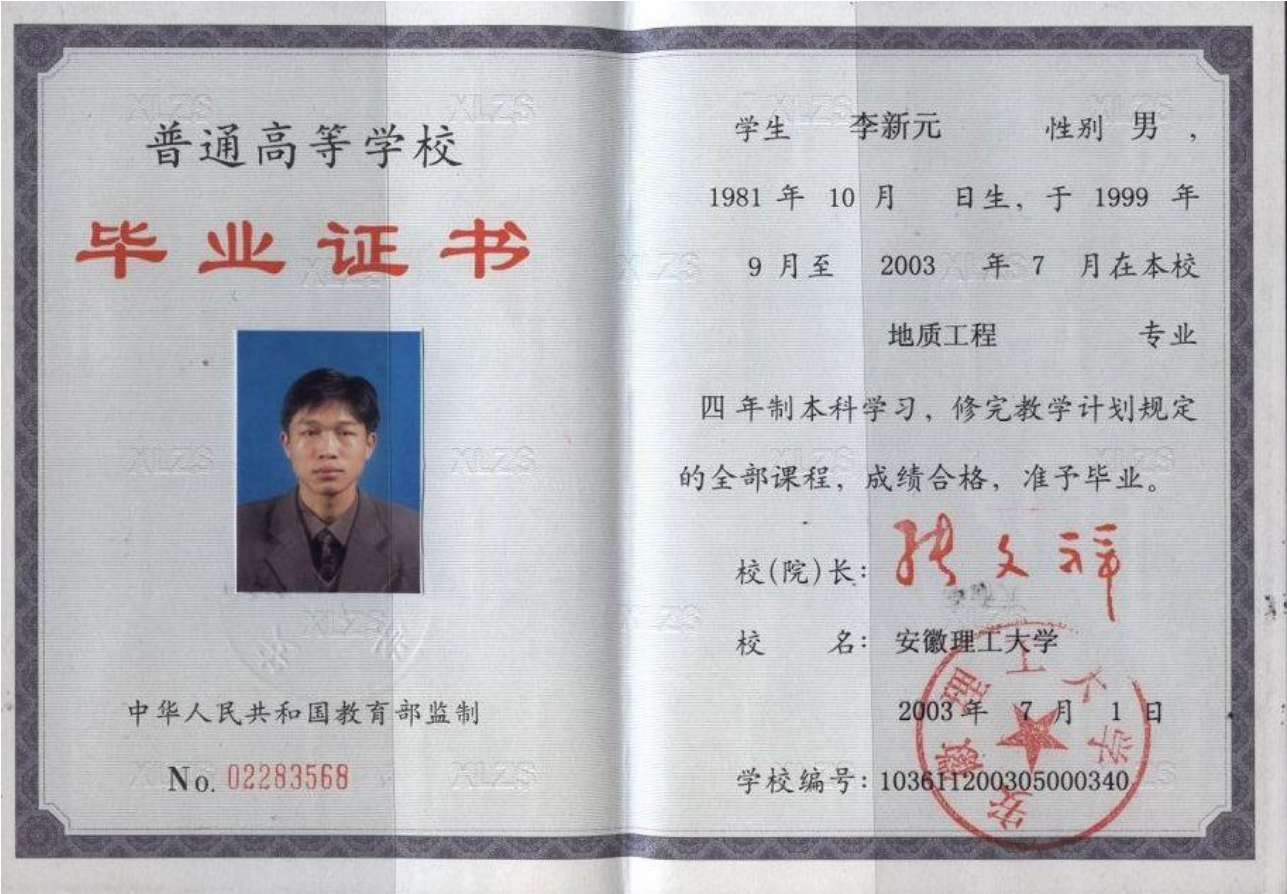 普通高等学校
毕业证书
中华人民共和国教育部监制
No. 02283568
学生 李新元 性别 男 ，
1981 年 10 月 日生，于 1999 年
9 月至 2003 年 7 月在本校
地质工程 专业
四 年制本科学习，修完教学计划规定
的全部课程，成绩合格，准予毕业。
校(院)长：张文祥
校 名：安徽理工大学
2003 年 7 月 1 日
学校编号：103611200305000340
安徽理工大学
XLZS